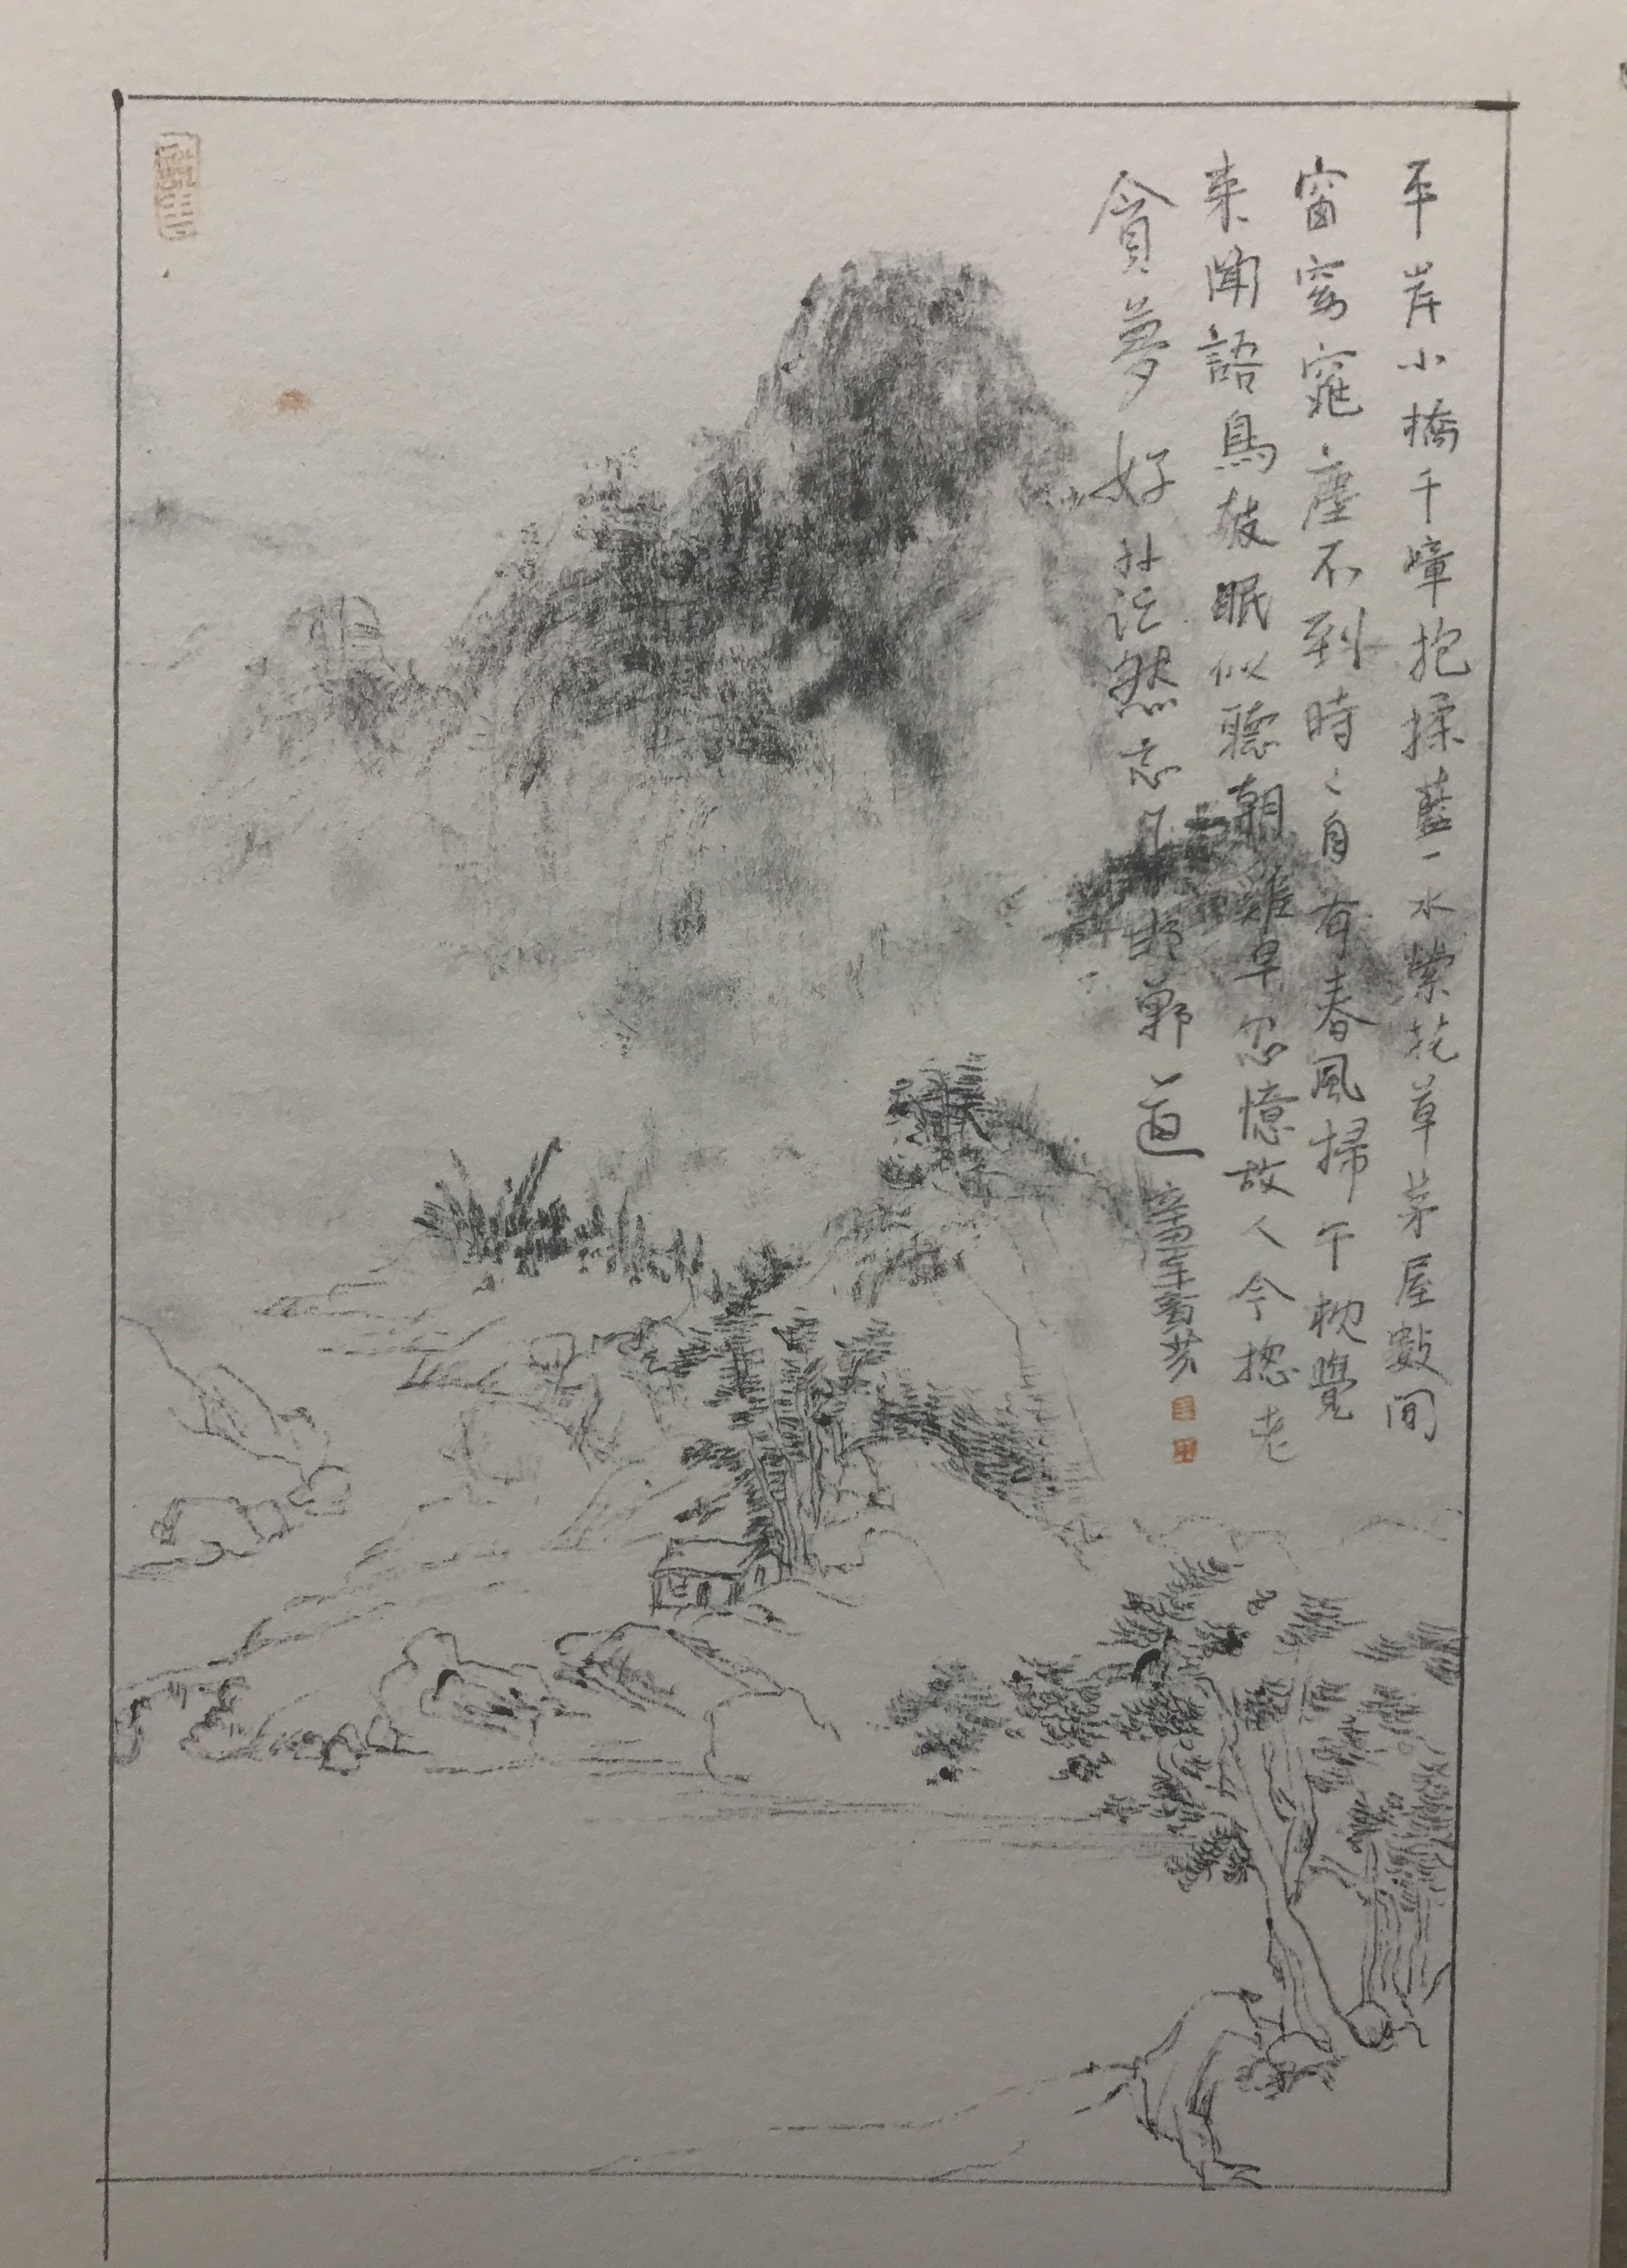 平岸小橋千嶂抱揉藍一水縈花草茅屋數間
窗窈窕塵不到時〻自有春風掃午枕覺
来聞語鳥攲眠似聽朝雞早忽憶故人今揔老
貪夢好茫然忘了邯鄲道